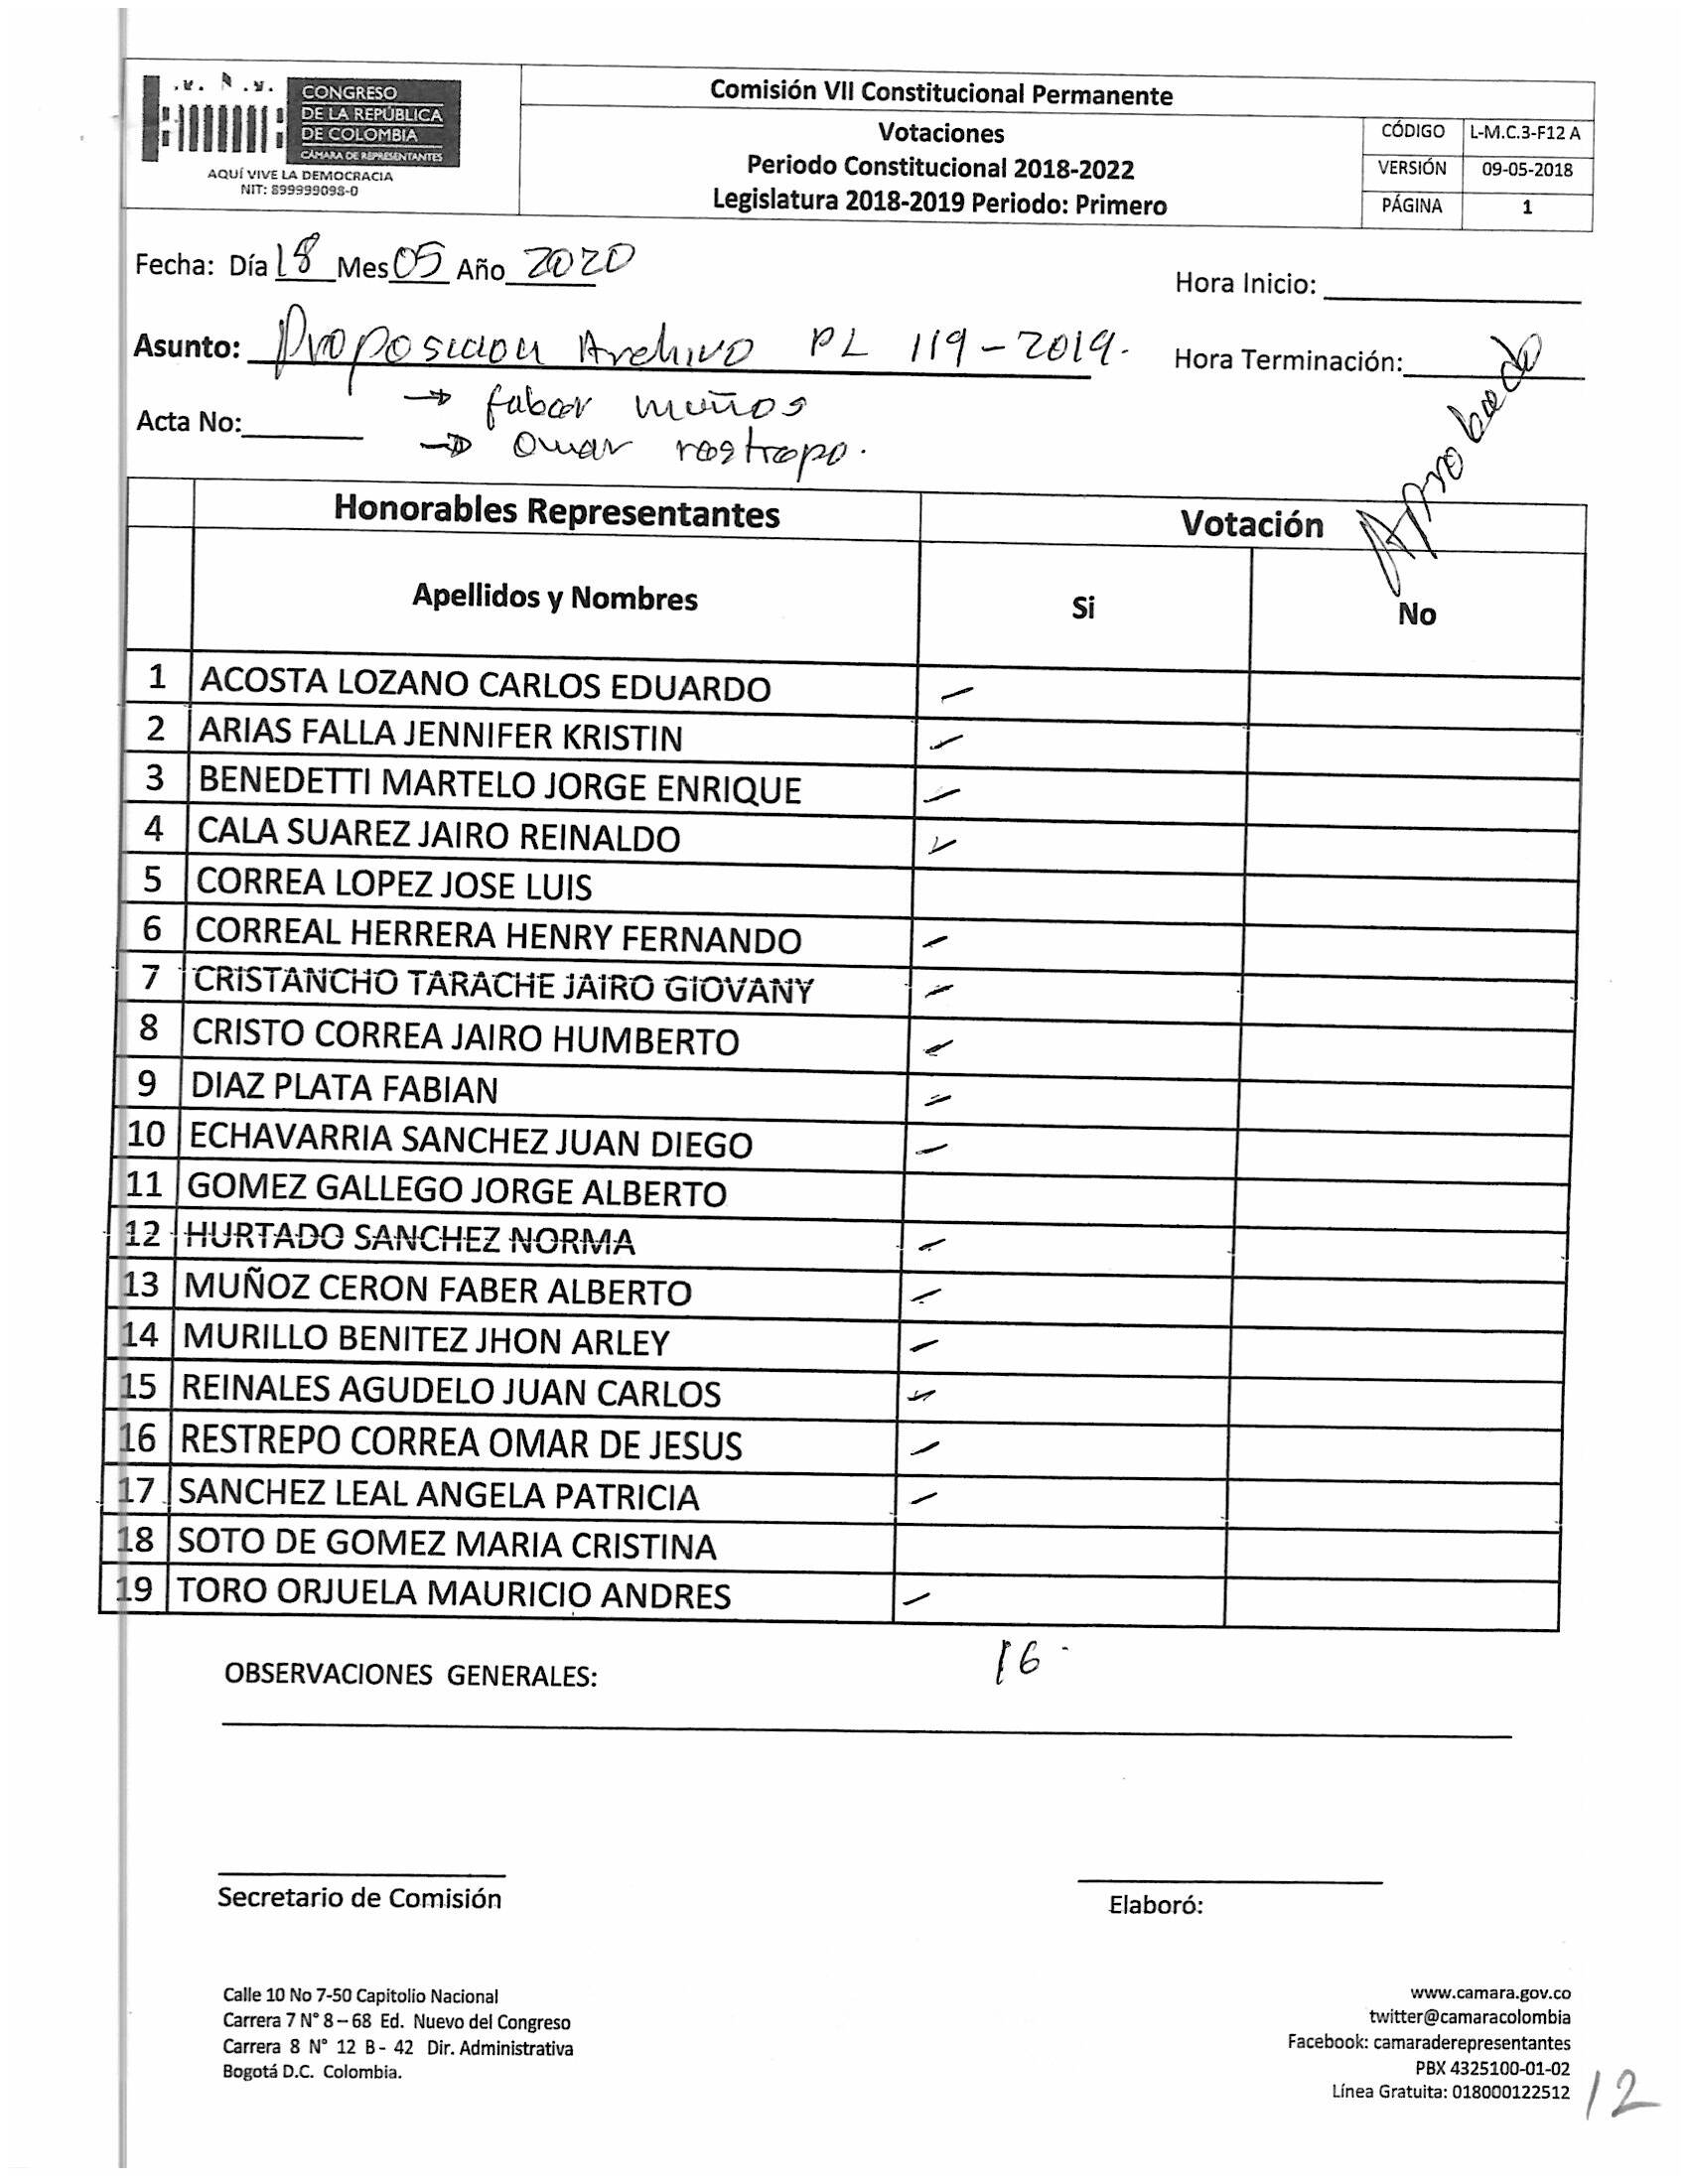 CONGRESO
DE LA REPÚBLICA
DE COLOMBIA
CÁMARA DE REPRESENTANTES
AQUÍ VIVE LA DEMOCRACIA
NIT: 899999098-0
Comisión VII Constitucional Permanente
Votaciones
Periodo Constitucional 2018-2022
Legislatura 2018-2019 Periodo: Primero
CÓDIGO L-M.C.3-F12 A
VERSIÓN 09-05-2018
PÁGINA 1
Fecha: Día 18 Mes 05 Año 2020
Hora Inicio:
Asunto: Proposicion Archivo PL 119-2019.
Hora Terminación:
Aprobado
→ faber muños
Acta No:
→ Omar restrepo.
Honorables Representantes Votación
Apellidos y Nombres Si No
1 ACOSTA LOZANO CARLOS EDUARDO
2 ARIAS FALLA JENNIFER KRISTIN
3 BENEDETTI MARTELO JORGE ENRIQUE
4 CALA SUAREZ JAIRO REINALDO
5 CORREA LOPEZ JOSE LUIS
6 CORREAL HERRERA HENRY FERNANDO
7 CRISTANCHO TARACHE JAIRO GIOVANY
8 CRISTO CORREA JAIRO HUMBERTO
9 DIAZ PLATA FABIAN
10 ECHAVARRIA SANCHEZ JUAN DIEGO
11 GOMEZ GALLEGO JORGE ALBERTO
12 HURTADO SANCHEZ NORMA
13 MUÑOZ CERON FABER ALBERTO
14 MURILLO BENITEZ JHON ARLEY
15 REINALES AGUDELO JUAN CARLOS
16 RESTREPO CORREA OMAR DE JESUS
17 SANCHEZ LEAL ANGELA PATRICIA
18 SOTO DE GOMEZ MARIA CRISTINA
19 TORO ORJUELA MAURICIO ANDRES
16
OBSERVACIONES GENERALES:
Secretario de Comisión
Elaboró:
Calle 10 No 7-50 Capitolio Nacional
Carrera 7 N° 8 – 68 Ed. Nuevo del Congreso
Carrera 8 N° 12 B - 42 Dir. Administrativa
Bogotá D.C. Colombia.
www.camara.gov.co
twitter@camaracolombia
Facebook: camaraderepresentantes
PBX 4325100-01-02
Línea Gratuita: 018000122512
12